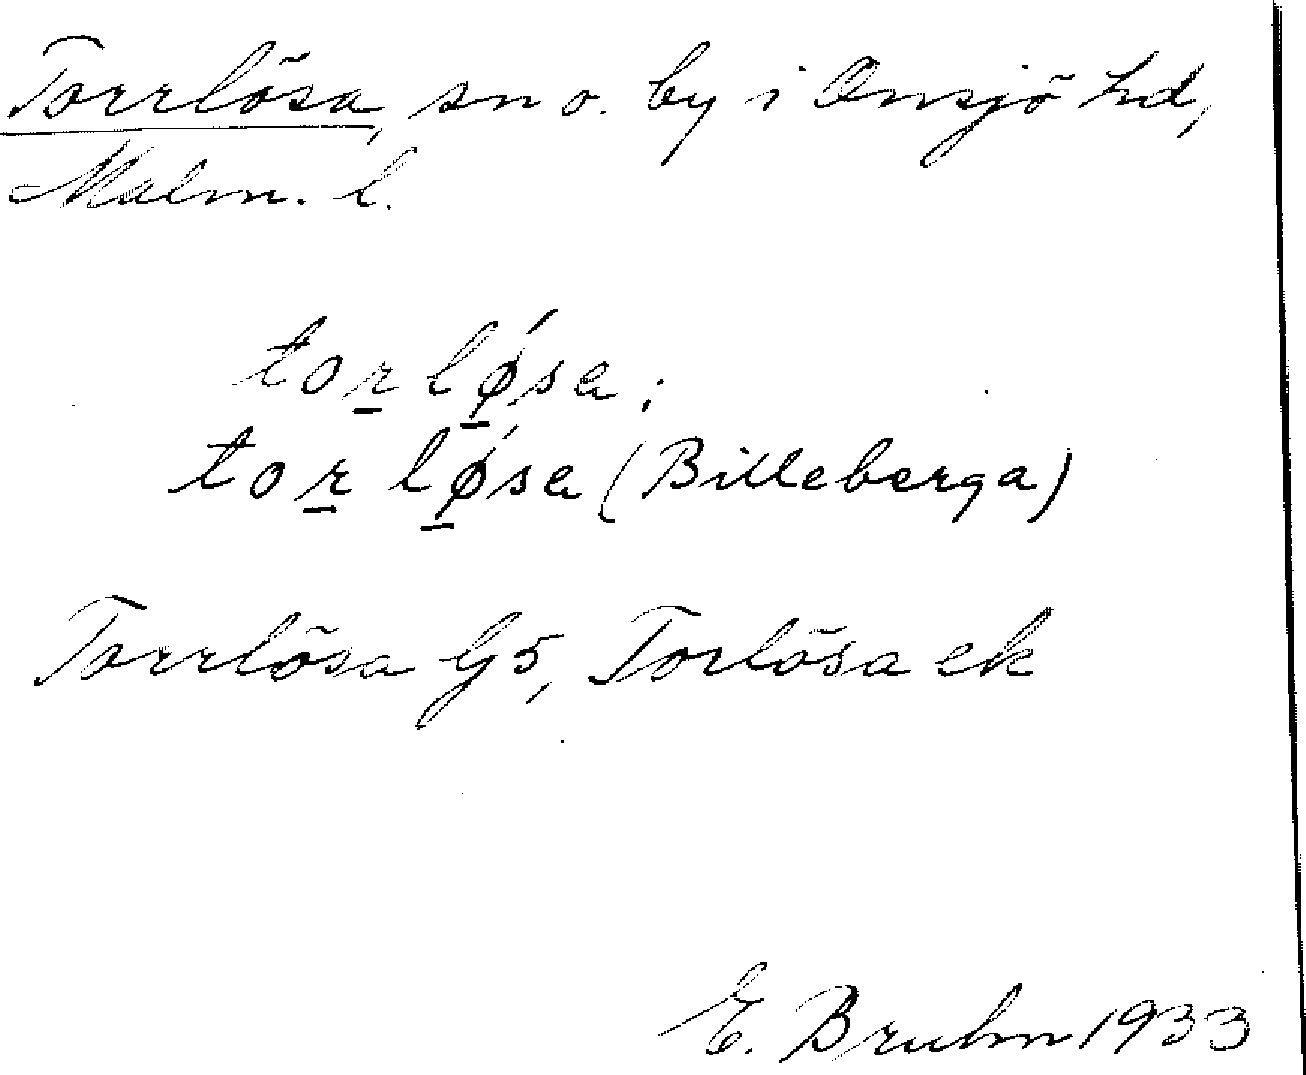 Torrlösa, sn o. by i Onsjö hd,
Malm. l.
to̱r lǿ̱sa;
to̱r lǿ̱sa (Billeberga)
Torrlösa G5, Torlösa ek
E. Bruhn 1933